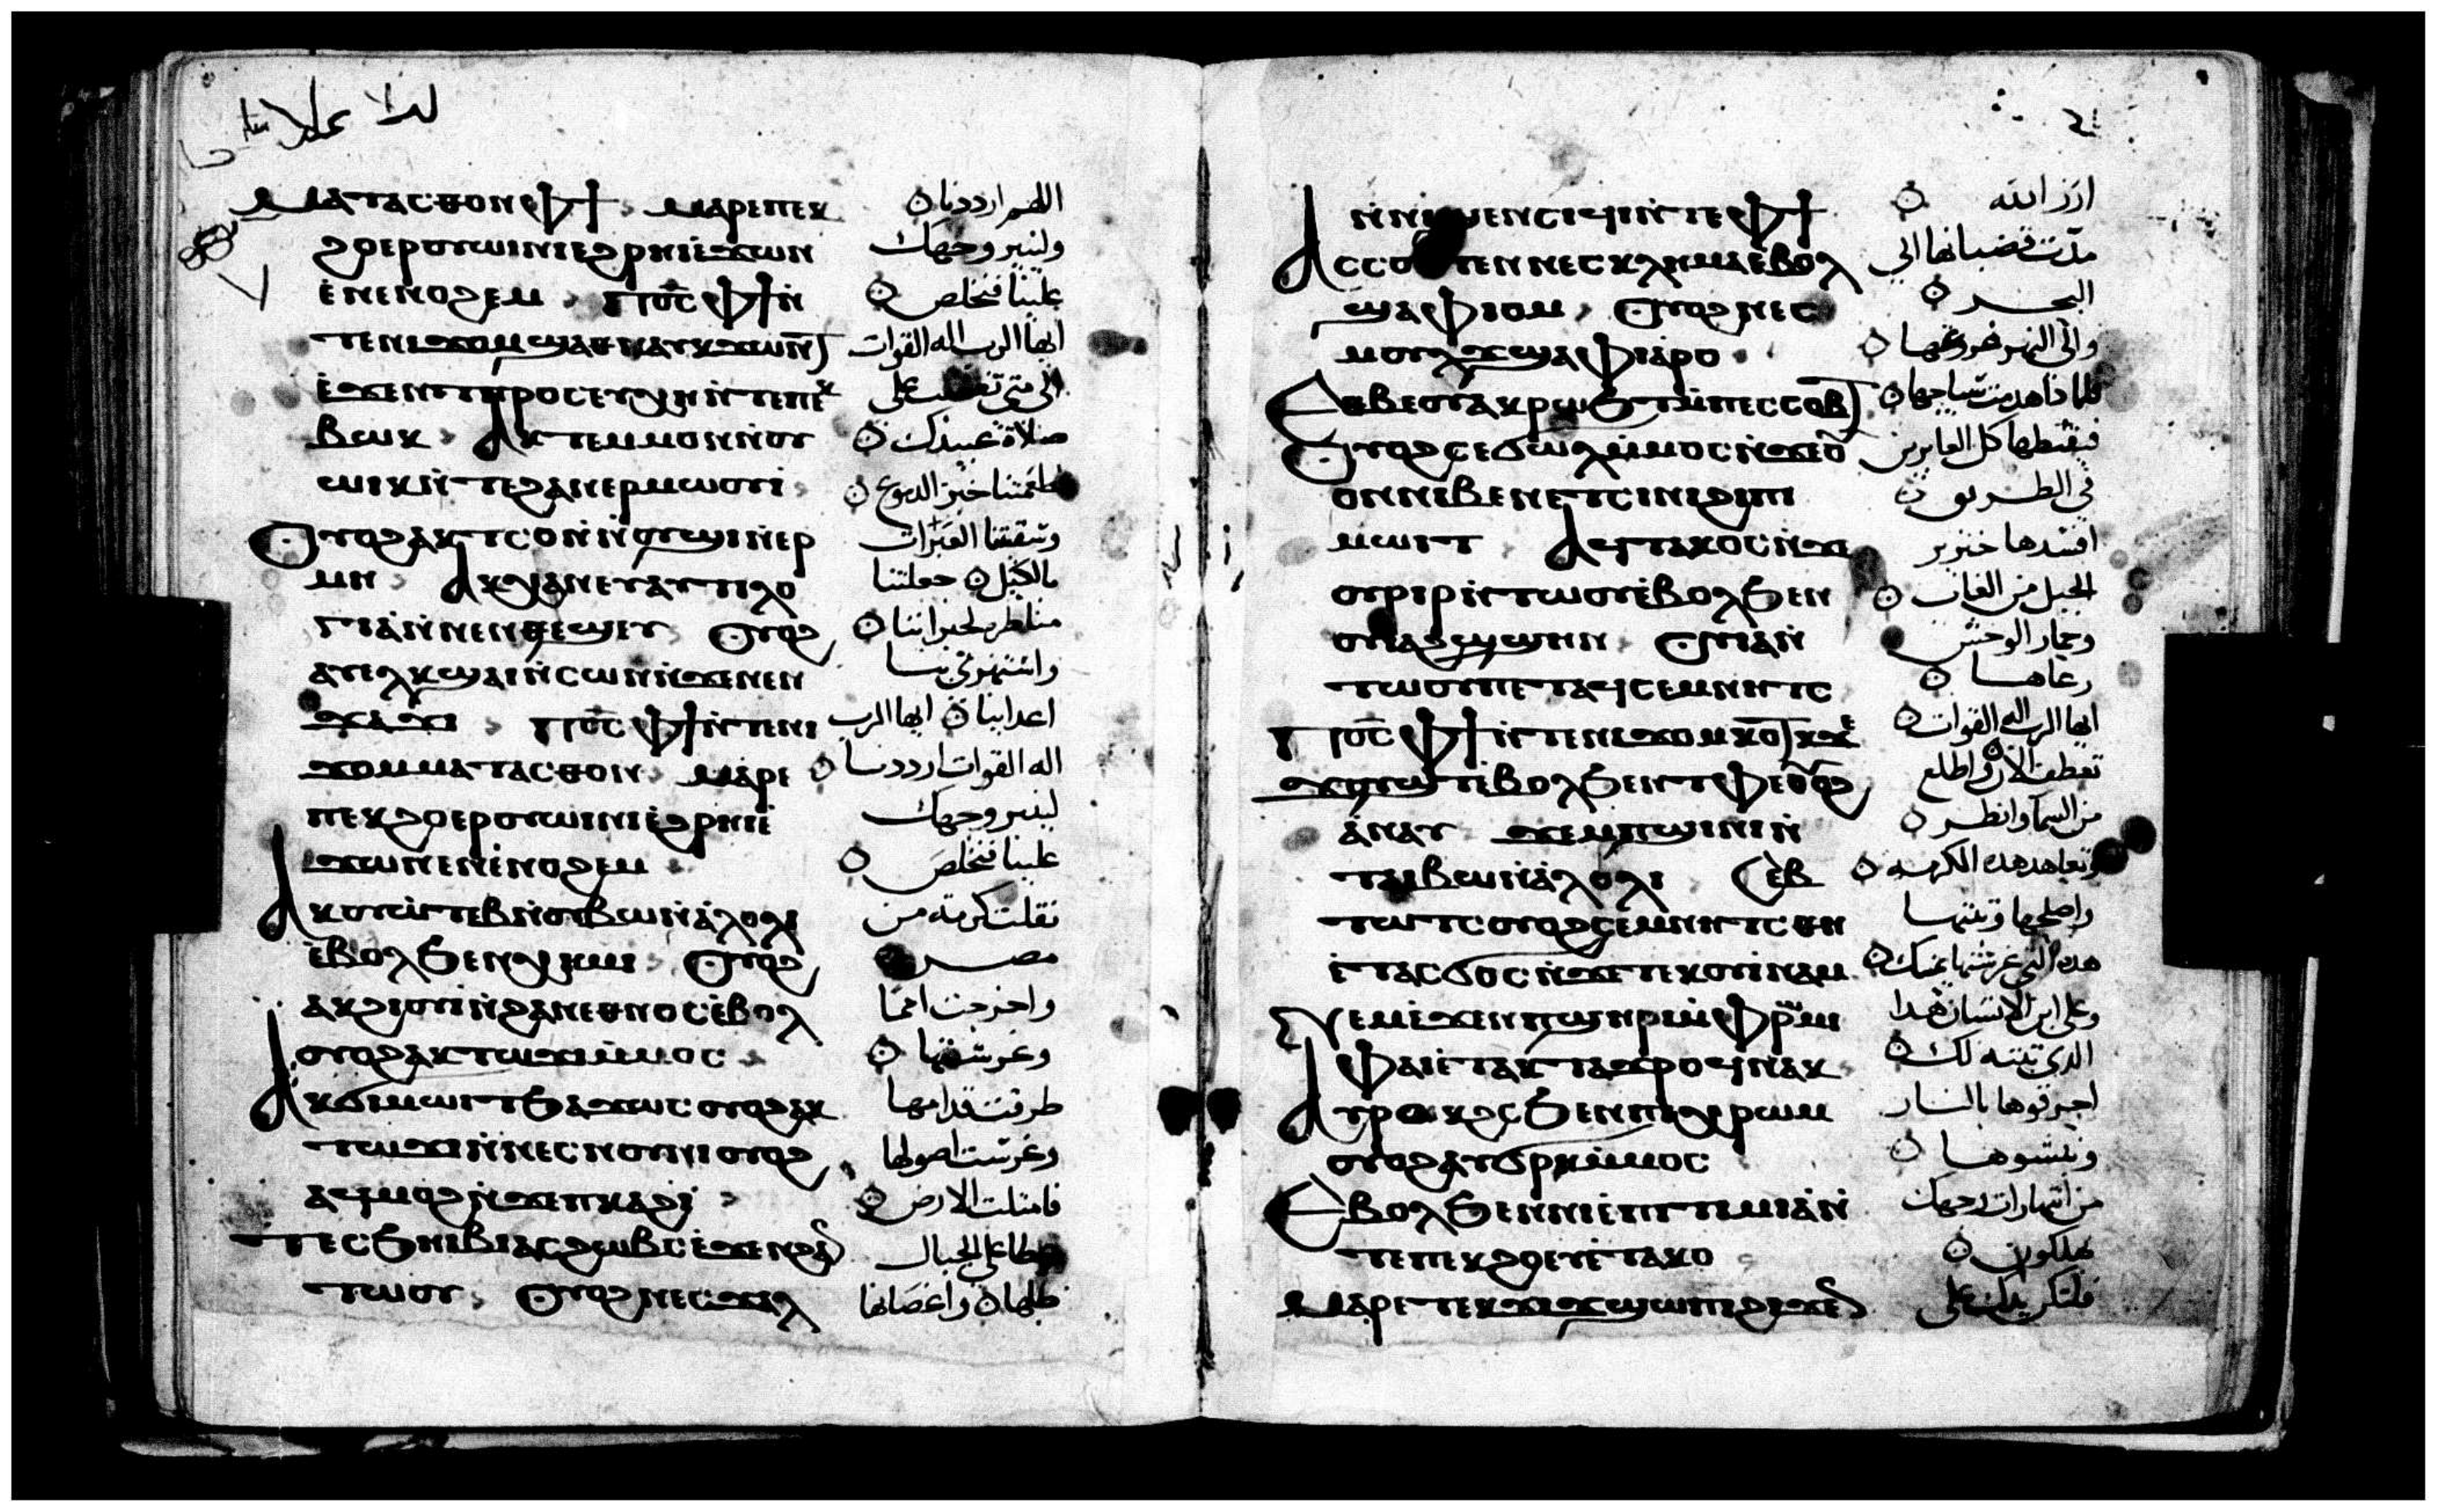 ⲙⲁⲧⲁⲥⲑⲟⲛ ⲫϯ ⲙⲁⲣⲉⲡⲉⲕ
ϩⲟⲉⲣⲟⲩⲱⲓⲛⲓⲉϩⲣⲏⲓⲉϫⲱⲛ
ⲉⲛⲉⲛⲟϩⲉⲙ ⲡⲟ̅ⲥ̅ ⲫϯⲛ̀
ⲧⲉⲛⲓϫⲟⲙϣⲁⲑⲛⲁⲩⲕϫⲱⲛⲧ
ⲉϫⲉⲛϯⲡⲣⲟⲥⲉⲩⲭⲏⲛ̀ⲧⲉⲡⲉⲕ
ⲃⲱⲕ ⲁⲕⲧⲉⲙⲙⲟⲛⲛ̀ⲟⲩ
ⲱⲓⲕⲛ̀ⲧⲉϩⲁⲛⲉⲣⲙⲱⲟⲩⲓ
ⲟⲩⲟϩⲁⲕⲧⲥⲟⲛⲛ̀ⲟⲩϣⲓⲛ̀ⲉⲣ
ⲙⲏ ⲁⲕⲭⲁⲛⲉⲩⲁⲛⲧⲓⲗⲟ
ⲅⲓⲁⲛ̀ⲛⲉⲛⲑⲉϣⲉⲩ ⲟⲩⲟϩ
ⲁⲩⲉⲗⲕϣⲁⲓⲛ̀ⲥⲱⲛⲛ̀ϫⲉⲛⲉⲛ
ϫⲁϫⲓ ⲡⲟ̅ⲥ̅ ⲫϯⲛ̀ⲧⲉⲛⲓ
ϫⲟⲙⲙⲁⲧⲁⲥⲑⲟⲛ ⲙⲁⲣⲉ
ⲡⲉⲕϩⲟⲉⲣⲟⲩⲱⲓⲛⲓⲉϩⲣⲏⲓⲉ
ϫⲱⲛⲉⲛⲉ̀ⲛⲟϩⲉⲙ
ⲁⲕⲟⲩⲱⲧⲉⲃⲛ̀ⲟⲩⲃⲱⲛ̀ⲁⲗⲟⲗⲓ
ⲉⲃⲟⲗϧⲉⲛⲭⲏⲙⲓ ⲟⲩⲟϩ
ⲁⲕϩⲓⲟⲩⲓⲛ̀ϩⲁⲛⲉⲑⲛⲟⲥⲉⲃⲟⲗ
ⲟⲩⲟϩⲁⲕⲧⲱϫⲓⲙ̀ⲙⲟⲥ
ⲁⲕϭⲓⲙⲱⲓⲧϧⲁϫⲱⲥⲟⲩⲟϩⲁⲕ
ⲧⲱϫⲓⲛ̀ⲛⲉⲥⲛⲟⲩⲛⲓⲟⲩⲟϩ
ⲁϥⲙⲟϩⲛ̀ϫⲉⲡⲕⲁϩⲓ
ⲧⲉⲥϧⲏⲓⲃⲓⲁⲥϩⲱⲃⲥⲉϫⲉⲛϩⲁⲛ
ⲧⲱⲟⲩ ⲟⲩⲟϩⲛⲉⲥϫⲁⲗ
اللهم ارددنا
ولينير وجهك
علينا فنخلص
ايها الرب اله القوات
الى متى تغضب على
صلاة عبيدك
اطعمتنا خبز الدموع
وسقيتنا العبرات
بالكيل جعلتنا
مناظرة لجيراننا
واستهزى بنا
اعداينا ايها الرب
اله القوات ارددنا
لينير وجهك
علينا فنخلص
نقلت كرمة من
مصر
واخرجت امما
وغرستها
طرقت قدامها
وغرست اصولها
فامتلت الارض
غطا على الجبال
ظلها واغصانها
ⲛ̀ⲛⲓϣⲉⲛⲥⲓϥⲓⲛ̀ⲧⲉⲫϯ
ⲁⲥⲥⲟⲩⲧⲉⲛⲛⲉⲥⲕⲗⲏⲙⲁⲉ̀ⲃⲟⲗ
ϣⲁⲫⲓⲟⲙ ⲟⲩⲟϩⲛⲉⲥ
ⲙⲟⲩⲗϫϣⲁⲫⲓⲁⲣⲟ
ⲉⲑⲃⲉⲟⲩⲁⲕⲣⲱϧⲧⲙ̀ⲡⲉⲥⲥⲟⲃⲧ
ⲟⲩⲟϩⲥⲉϭⲱⲗⲙ̀ⲙⲟⲥⲛ̀ϫⲉⲟ̅
ⲟⲛⲛⲓⲃⲉⲛⲉⲧⲥⲓⲛⲓϩⲓⲡⲓ
ⲙⲱⲓⲧ ⲁϥⲧⲁⲕⲟⲥⲛ̀ϫⲉ
ⲟⲩⲣⲓⲣⲓⲛ̀ⲧⲱⲟⲩⲉ̀ⲃⲟⲗϧⲉⲛ
ⲟⲩⲓⲁϩϣϣⲏⲛ ⲟⲩⲓⲁⲛ̀
ⲧⲱⲟⲩⲡⲉⲧⲁϥⲥⲉⲙⲛⲏⲧⲥ
ⲡⲟ̅ⲥ̅ ⲫϯⲛ̀ⲧⲉⲛⲓϫⲟⲙⲕⲟⲧⲕϫⲉ
ϫⲟⲩϣⲧⲉ̀ⲃⲟⲗϧⲉⲛⲧⲫⲉⲟⲩⲟϩ
ⲁⲛⲁⲩ ϫⲉⲙⲡϣⲓⲛⲓⲛ̀
ⲧⲁⲓⲃⲱⲛ̀ⲁⲗⲟⲗⲓ ⲥⲉⲃ
ⲧⲱⲧⲥⲟⲩⲟϩⲥⲉⲙⲛⲏⲧⲥⲑⲏ
ⲉ̀ⲧⲁⲥϭⲟⲥⲛ̀ϫⲉⲧⲉⲕⲟⲩⲓⲛⲁⲙ
ⲛⲉⲙⲉϫⲉⲛⲡϣⲏⲣⲓⲙ̀ⲫⲣⲱⲙⲓ
ⲫⲁⲓⲉ̀ⲧⲁⲕⲧⲁϫⲣⲟϥⲛⲁⲕ
ⲁⲩⲣⲟⲕϩⲥϧⲉⲛⲡⲓⲭⲣⲱⲙ
ⲟⲩⲟϩⲁⲩϭⲣⲕⲙ̀ⲙⲟⲥ
ⲉⲃⲟⲗϧⲉⲛⲛⲓⲉ̀ⲡⲓⲧⲓⲙⲓⲁⲛ̀
ⲧⲉⲡⲉⲕϩⲟⲉⲩⲉ̀ⲧⲁⲕⲟ
ⲙⲁⲣⲉⲧⲉⲕϫⲓϫϣⲱⲡⲓϩⲓϫⲉⲛ
ارز الله
مدت قضبانها الى
البحر
والى النهر فروعها
فلماذا هدمت سياجها
فيقطفها كل العابرين
في الطريق
افسدها خنزير
الجبل من الغاب
وحمار الوحش
رعاها
ايها الرب اله القوات
تعطف الان واطلع
من السما وانظر
وتعاهد هذه الكرمة
واصلحها وثبتها
هذه التى غرستها يمينك
وعلى ابن الانسان هذا
الذى ثبته لك
احرقوها بالنار
ونبشوها
من انتهارات وجهك
يهلكون
فلتكن يدك على